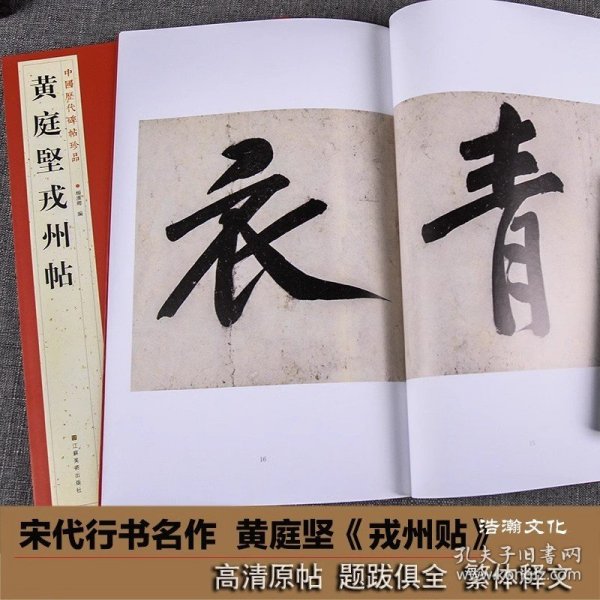 中國歷代碑帖珍品
黄庭堅戎州帖
編
江蘇美術出版社
青
衣
16
15
宋代行书名作 黄庭坚《戎州贴》
浩瀚文化
高清原帖 题跋俱全 繁体释文
孔夫子旧书网